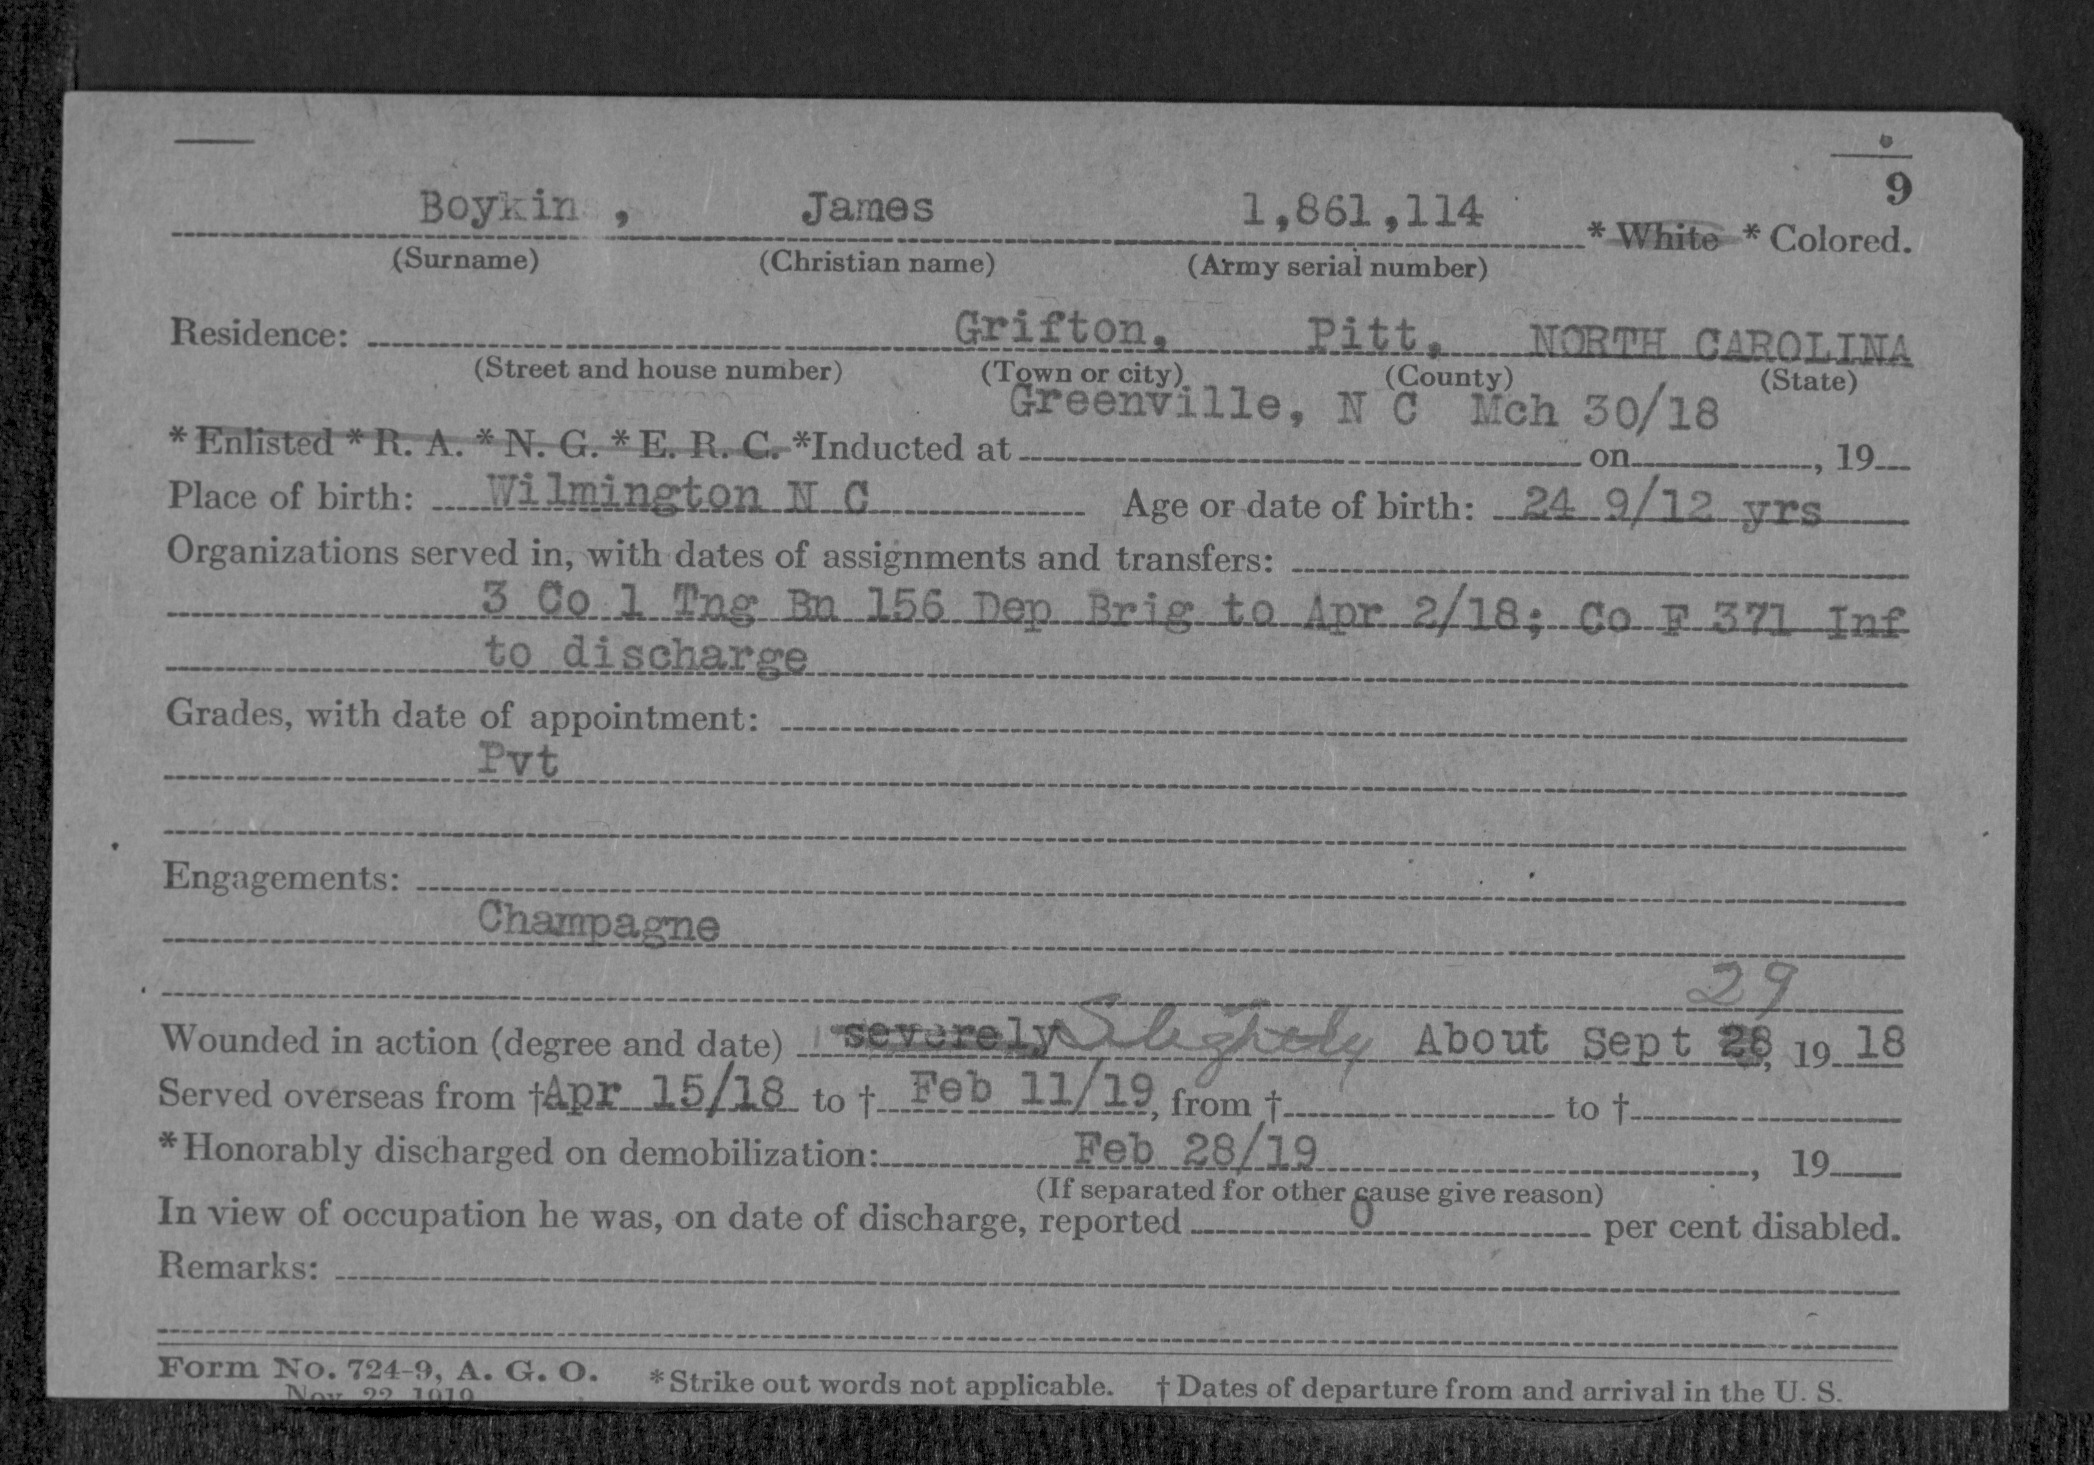 9
Boykin , James 1,861,114 * White * Colored.
(Surname) (Christian name) (Army serial number)
Residence: Grifton, Pitt, NORTH CAROLINA
(Street and house number) (Town or city) (County) (State)
Greenville, N C Mch 30/18
*Enlisted *R. A. *N. G. *E. R. C. *Inducted at on , 19
Place of birth: Wilmington N C Age or date of birth: 24 9/12 yrs
Organizations served in, with dates of assignments and transfers:
3 Co 1 Tng Bn 156 Dep Brig to Apr 2/18; Co F 371 Inf
to discharge
Grades, with date of appointment:
Pvt
Engagements:
Champagne
29
Wounded in action (degree and date) severely Slightly About Sept 28, 19 18
Served overseas from †Apr 15/18 to † Feb 11/19, from † to †
*Honorably discharged on demobilization: Feb 28/19 , 19
(If separated for other cause give reason)
In view of occupation he was, on date of discharge, reported 0 per cent disabled.
Remarks:
Form No. 724-9, A. G. O. *Strike out words not applicable. †Dates of departure from and arrival in the U. S.
Nov. 22, 1919